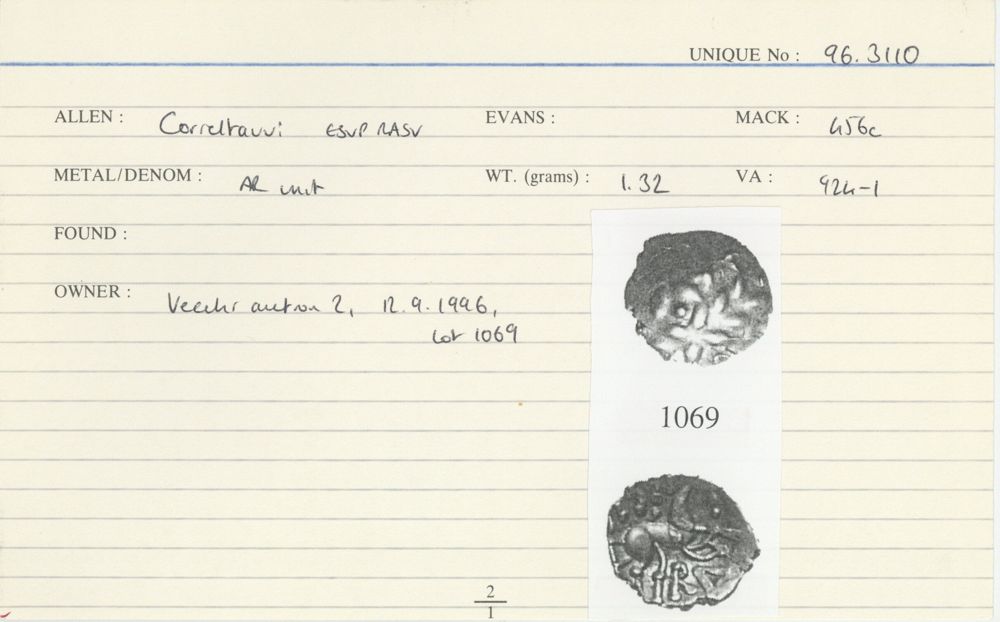 UNIQUE No : 96.3110
ALLEN : Correltauvi ESVP RASV EVANS : MACK : 456c
METAL/DENOM : AR unit WT. (grams) : 1.32 VA : 924-1
FOUND :
OWNER : Vecchi auction 2, 12.9.1996,
Lot 1069
1069
2
1